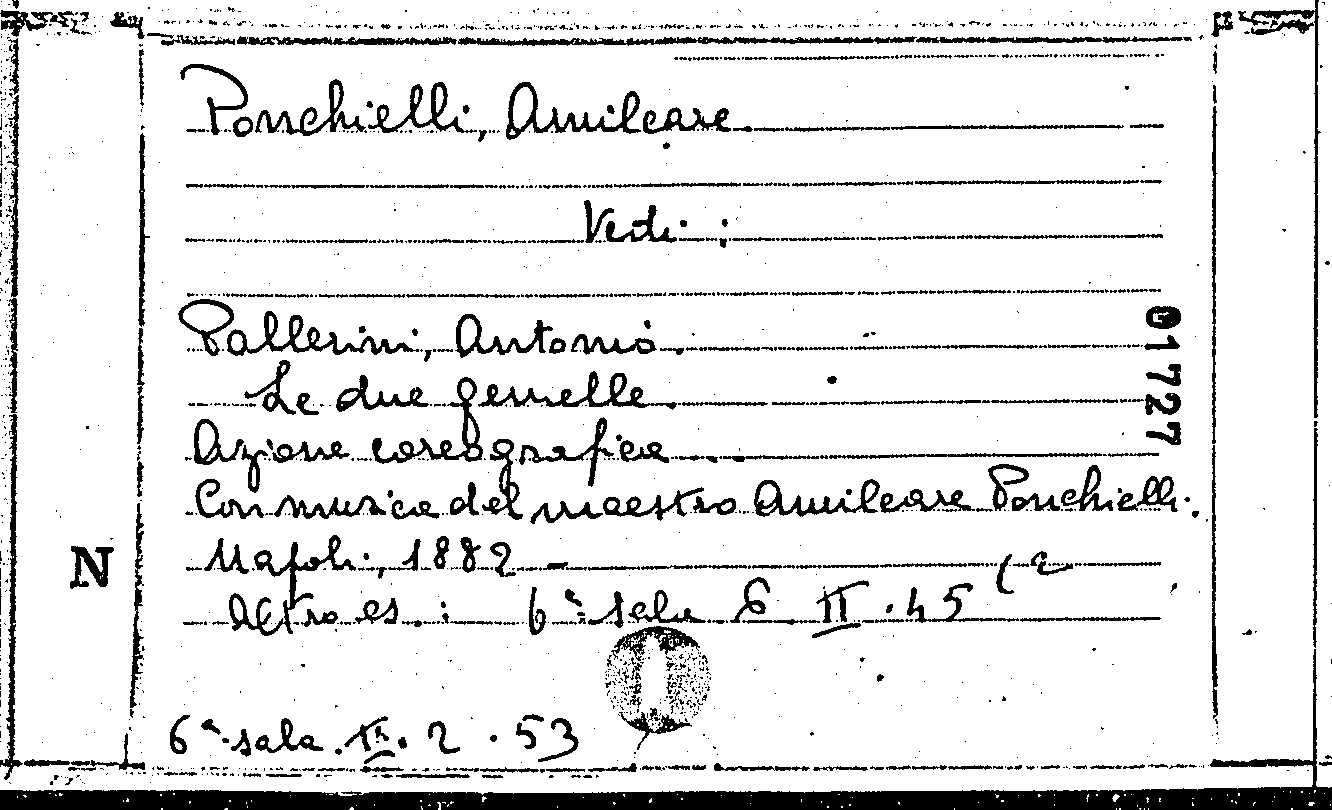 Ponchielli, Amilcare.
Vedi :
Pallerini, Antonio.
Le due gemelle.
Azione coreografica ...
Con musica del maestro Amilcare Ponchielli.
Napoli, 1882 -
Altro es. : 6ª sala 6 II . 45 (2
6ª sala . II . 2 . 53
N
01727